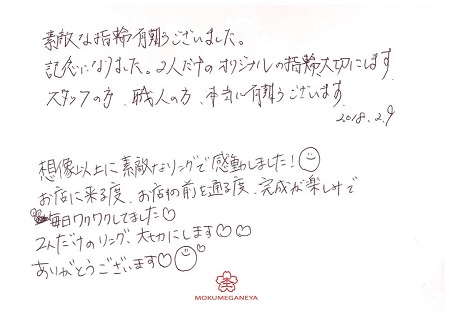 素敵な指輪有難うございました。
記念になりました。2人だけのオリジナルの指輪大切にします。
スタッフの方、職人の方、本当に有難うございます。
2018.2.9
想像以上に素敵なリングで感動しました!
お店に来る度、お店の前を通る度、完成が楽しみで
毎日ワクワクしてました♡
2人だけのリング、大切にします♡♡
ありがとうございます♡
MOKUMEGANEYA